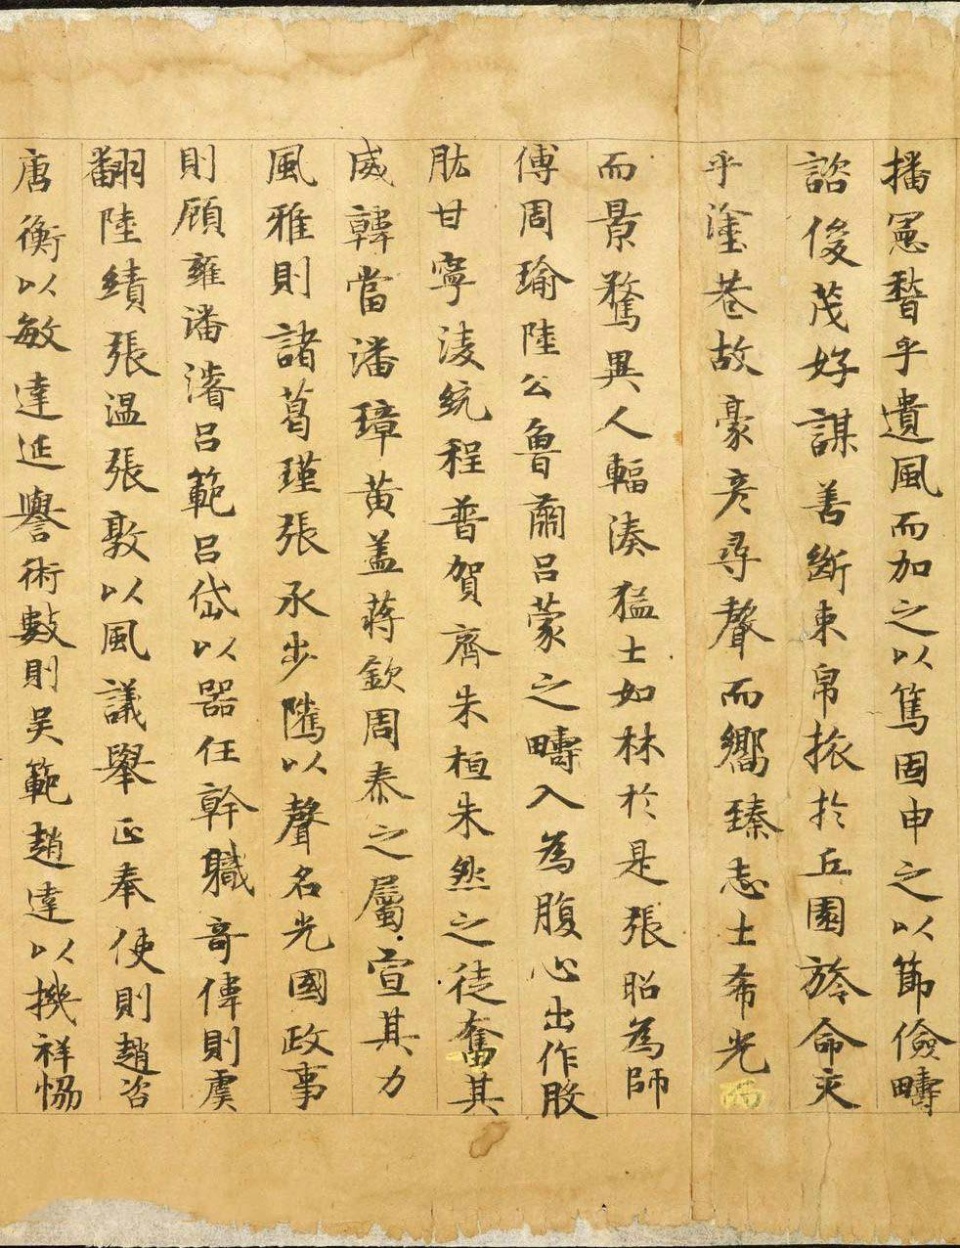 播憲稽乎遺風而加之以篤固申之以節儉疇
諮俊茂好謀善斷束帛旅於丘園旍命交
乎塗巷故豪彦尋聲而嚮臻志士希光
而景騖異人輻湊猛士如林於是張昭為師
傅周瑜陸公魯肅呂蒙之疇入為腹心出作股
肱甘寧淩統程普賀齊朱桓朱然之徒奮其
威韓當潘璋黄盖蒋欽周泰之屬宣其力
風雅則諸葛瑾張承步隲以聲名光國政事
則顧雍潘濬呂範呂岱以器任幹職奇偉則虞
翻陸績張温張敦以風議舉正奉使則趙咨
唐衡以敏達延譽術數則吴範趙達以機祥恊